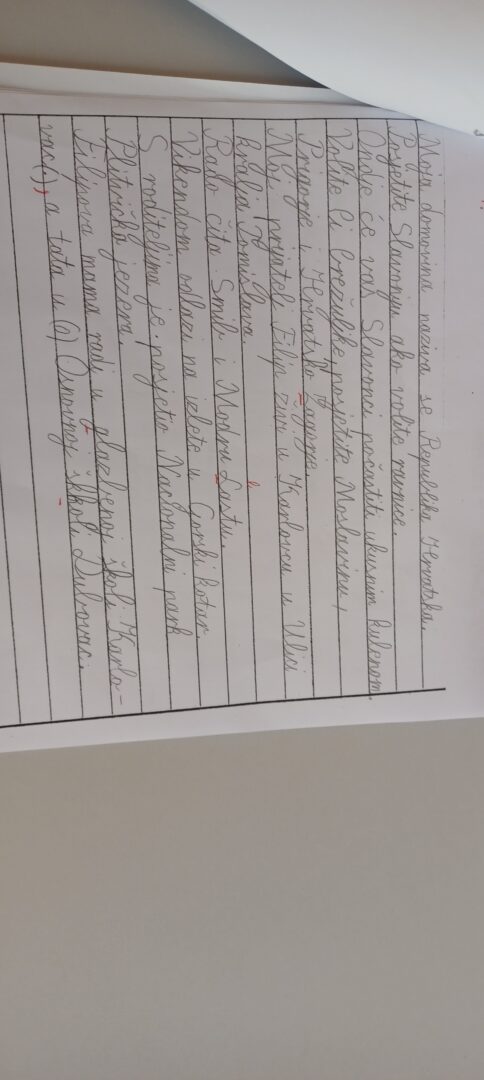 Moja domovina naziva se Republika Hrvatska.
Posjetite Slavoniju ako volite ravnice.
Ondje će vas Slavonci počastiti ukusnim kulenom.
Volite li brežuljke posjetite Moslavinu,
Prigorje i Hrvatsko Zagorje.
Moj prijatelj Filip živi u Karlovcu u Ulici
kralja Tomislava.
Rado čita Smib i Modru Lastu.
Vikendom odlazi na izlete u Gorski kotar.
S roditeljima je posjetio Nacionalni park
Plitvička jezera.
Filipova mama radi u glazbenoj školi Karlo-
vac(,), a tata u (O) Osnovnoj školi Dubovac.